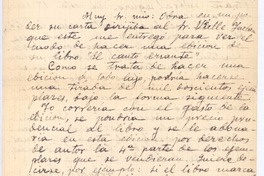 Muy Sr. mío: Obra en mi po-
der su carta dirijida al Sr. Valle Incla
que este me entregó para ver el
modo de hacer una edicion de
su libro "El canto errante".
Como se trata de hacer una
edición a todo lujo podría hacerse
una tirada de mil doscientos ejem-
plares, bajo la forma siguiente:
Yo correría con el gasto de la
edición, se pondría un precio pru-
dencial al libro y se le abona-
ría en esta por derechos
de autor la 4ª parte de los ejem-
plares que se vendieran. Quiero de-
cirse, por ejemplo: si el libro marca